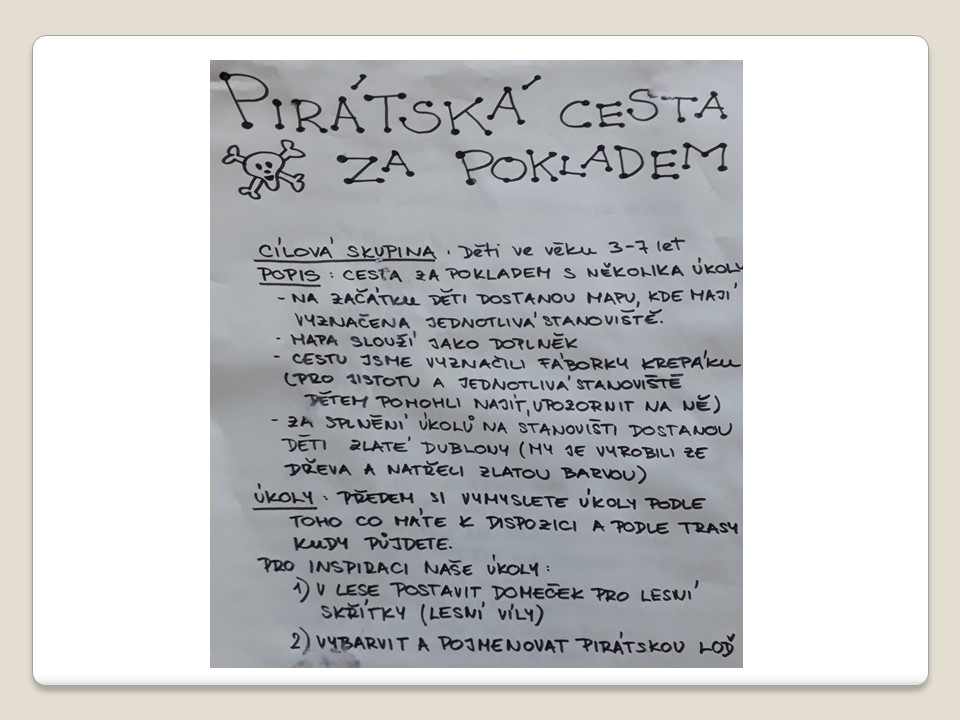 PIRÁTSKÁ CESTA
ZA POKLADEM
CÍLOVÁ SKUPINA : Děti ve věku 3-7 let
POPIS : CESTA ZA POKLADEM S NĚKOLIKA ÚKOLY
- NA ZAČÁTKU DĚTI DOSTANOU MAPU, KDE MAJÍ
VYZNAČENA JEDNOTLIVÁ STANOVIŠTĚ.
- MAPA SLOUŽÍ JAKO DOPLNĚK
- CESTU JSME VYZNAČILI FÁBORKY KREPÁKU
(PRO JISTOTU A JEDNOTLIVÁ STANOVIŠTĚ
DĚTEM POMOHLI NAJÍT, UPOZORNIT NA NĚ)
- ZA SPLNĚNÍ ÚKOLŮ NA STANOVIŠTI DOSTANOU
DĚTI ZLATÉ DUBLONY (MY JE VYROBILI ZE
DŘEVA A NATŘELI ZLATOU BARVOU)
ÚKOLY : PŘEDEM SI VYMYSLETE ÚKOLY PODLE
TOHO CO MÁTE K DISPOZICI A PODLE TRASY
KUDY PŮJDETE.
PRO INSPIRACI NAŠE ÚKOLY :
1) V LESE POSTAVIT DOMEČEK PRO LESNÍ
SKŘÍTKY (LESNÍ VÍLY)
2) VYBARVIT A POJMENOVAT PIRÁTSKOU LOĎ